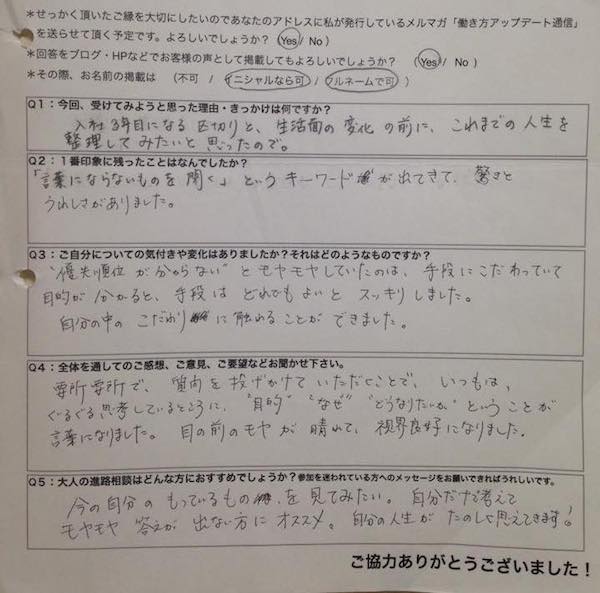 *せっかく頂いたご縁を大切にしたいのであなたのアドレスに私が発行しているメルマガ「働き方アップデート通信」
を送らせて頂く予定です。よろしいでしょうか?(Yes / No )
*回答をブログ・HPなどでお客様の声として掲載してもよろしいでしょうか? (Yes / No)
*その際、お名前の掲載は (不可 / イニシャルなら可 / フルネームで可)
Q1:今回、受けてみようと思った理由・きっかけは何ですか?
入社3年目になる区切りと、生活面の変化の前に、これまでの人生を
整理してみたいと思ったので。
Q2:1番印象に残ったことはなんでしたか?
「言葉にならないものを聞く」というキーワードが出てきて、驚きと
うれしさがありました。
Q3:ご自分についての気付きや変化はありましたか?それはどのようなものですか?
"優先順位が分からない"とモヤモヤしていたのは、手段にこだわっていて
目的が分かると、手段はどれでもよいとスッキリしました。
自分の中のこだわりに触れることができました。
Q4:全体を通してのご感想、ご意見、ご要望などお聞かせ下さい。
要所要所で、質問を投げかけていただくことで、いつもは、
ぐるぐる思考しているところに、"目的""なぜ""どうなりたいか"ということが
言葉になりました。目の前のモヤが晴れて、視界良好になりました。
Q5:大人の進路相談はどんな方におすすめでしょうか?参加を迷われている方へのメッセージをお願いできればうれしいです。
今の自分のもっているものを見てみたい。自分だけで考えて
モヤモヤ答えが出ない方にオススメ。自分の人生がたのしく思えてきます!
ご協力ありがとうございました!